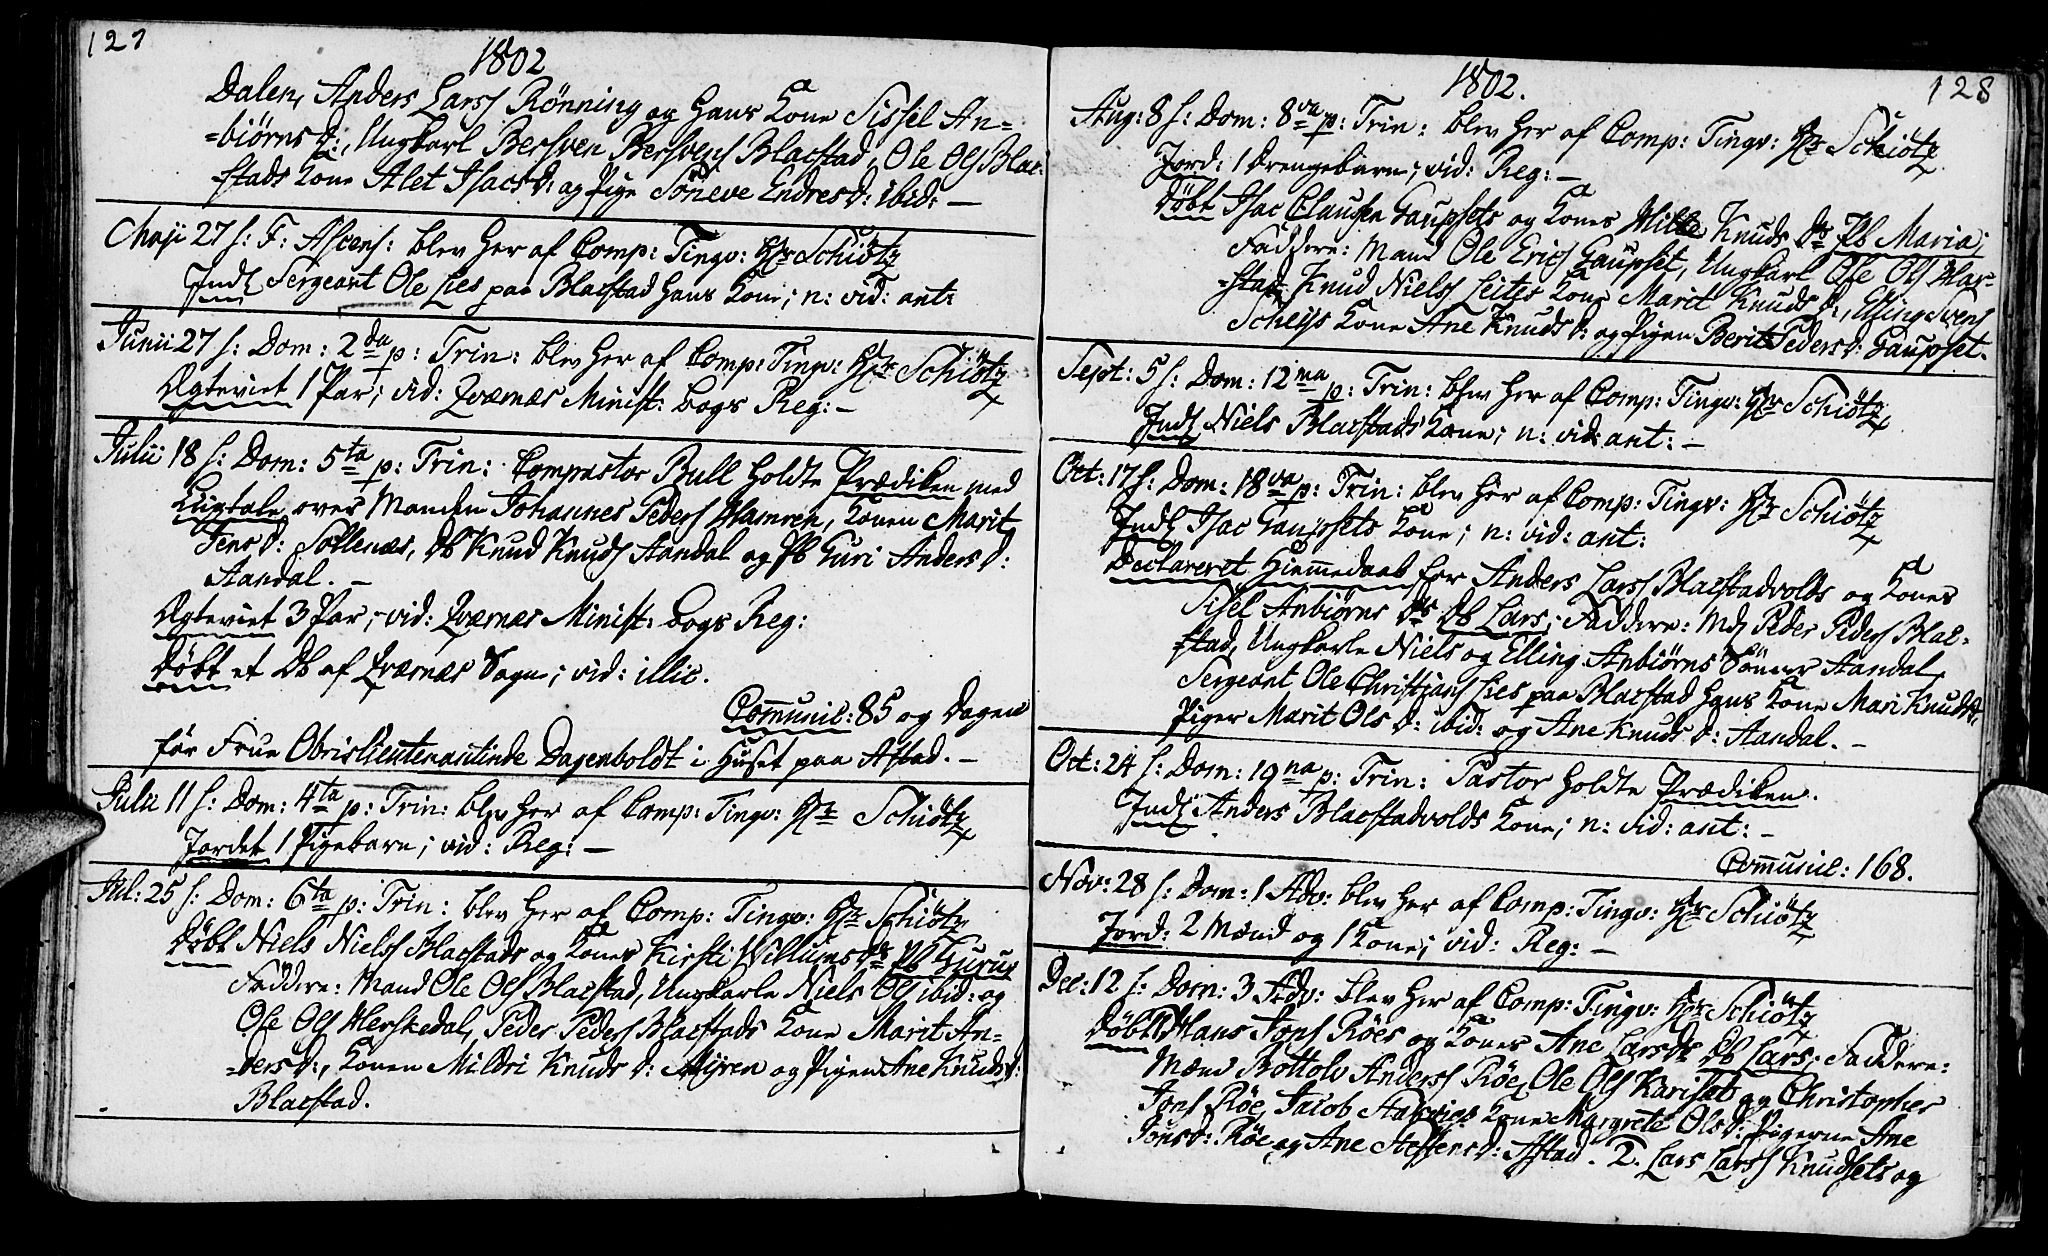 127
1802
Dalen, Anders Larss Rönning og hans Kone Sissel An-
=biörnsd:, Ungkarl Bersven Bersvens Blacstad, Ole Ols Blac-
stads Kone Alet Isacsd: og Pige Söneve Endresd: ibid: —
Maji 27 s: F: Ascens: blev her af Comp: Tingv: Hr Schiötz
Indl Sergeant Ole Lies paa Blacstad hans Kone; n: vid: ant:
Junii 27 s: Dom: 2da p: Trin: blev her af Comp: Tingv: Hr Schiötz
Ægteviet 1 Par; vid: Qværnæs Minist: bogs Reg: —
Julii 18 s: Dom: 5ta p: Trin: Compastor Bull holdte Prædiken med
Liigtale over Manden Johannes Peders Hamren, Konen Marit
Jensd: Sollenæs, Db Knud Knuds Aandal og Pb Guri Andersd:
Aandal. —
Ægteviet 3 Par; vid: Qværnæs Minist: bogs Reg:
Döbt et Db af Qværnæs Sogn; vid: illic.
Communic: 85 og Dagen
för Frue Obristlieutenantinde Dagenboldt i Huset paa Astad. —
Julii 11 s: Dom: 4ta p: Trin: blev her af Comp: Tingv: Hr Schiötz
Jordet 1 Pigebarn; vid: Reg: —
Jul: 25 s: Dom: 6ta p: Trin: blev her af Comp: Tingv: Hr Schiötz
Döbt Niels Niels Blacstads og Kones Kirsti Willumsdr Pb Guru;
Faddere: Mand Ole Ols Blacstad, Ungkarle Niels Ols ibid: og
Ole Ols Herskedal, Peder Peders Blacstads Kone Marit An-
=dersd:, Konen Mildri Knudsd: Myren og Pigen Ane Knudsd:
Blacstad.
1802.
128
Aug: 8 s: Dom: 8va p: Trin: blev her af Comp: Tingv: Hr Schiötz
Jord: 1 Drengebarn; vid: Reg: —
Döbt Isac Clausen Gaupsets og Kones Knuds Dr Pb Maria;
Faddere: Mand Ole Erics Gaupset, Ungkarl Ole Ols Har-
=stad, Knud Niels Leitis Kone Marit Knudsd:, Elling Svens
Scheiss Kone Ane Knudsd: og Pigen Berit Pedersd: Gaupset.
Sept: 5 s: Dom: 12ma p: Trin: blev her af Comp: Tingv: Hr Schiötz
Indl Niels Blacstads Kone; n: vid: ant: —
Oct: 17 s: Dom: 18va p: Trin: blev her af Comp: Tingv: Hr Schiötz
Indl Isac Gaupsets Kone; n: vid: ant:
Declareret Hiemmedaab for Anders Larss Blacstadvolds og Kones
Sisel Anbiörns Dr Db Lars; Faddere: Md Peder Peders Blac-
stad, Ungkarle Niels og Elling Anbiörns Sönner Aandal,
Sergeant Ole Christians Lies paa Blacstad hans Kone Mari Knudsd:,
Piger Marit Olsd: ibid: og Ane Knudsd: Aandal. —
Oct: 24 s: Dom: 19na p: Trin: Pastor holdte Prædiken.
Indl Anders Blacstadvolds Kone; n: vid: ant: —
Communic: 168.
Nov: 28 s: Dom: 1 Adv: blev her af Comp: Tingv: Hr Schiötz
Jord: 2 Mænd og 1 Kone; vid: Reg: —
Dec: 12 s: Dom: 3 Adv: blev her af Comp: Tingv: Hr Schiötz
Döbt 1. Hans Jons Röes og Kones Ane Larsdr Db Lars; Faddere:
Mænd Bottolv Anderss Röe, Ole Ols Kariset og Christopher
Jons Röe, Jacob Kone Margrete Olsd: Pigerne Ane
Jonsd: Röe og Ane Steffensd: Astad. 2. Lars Larss Knudsets og